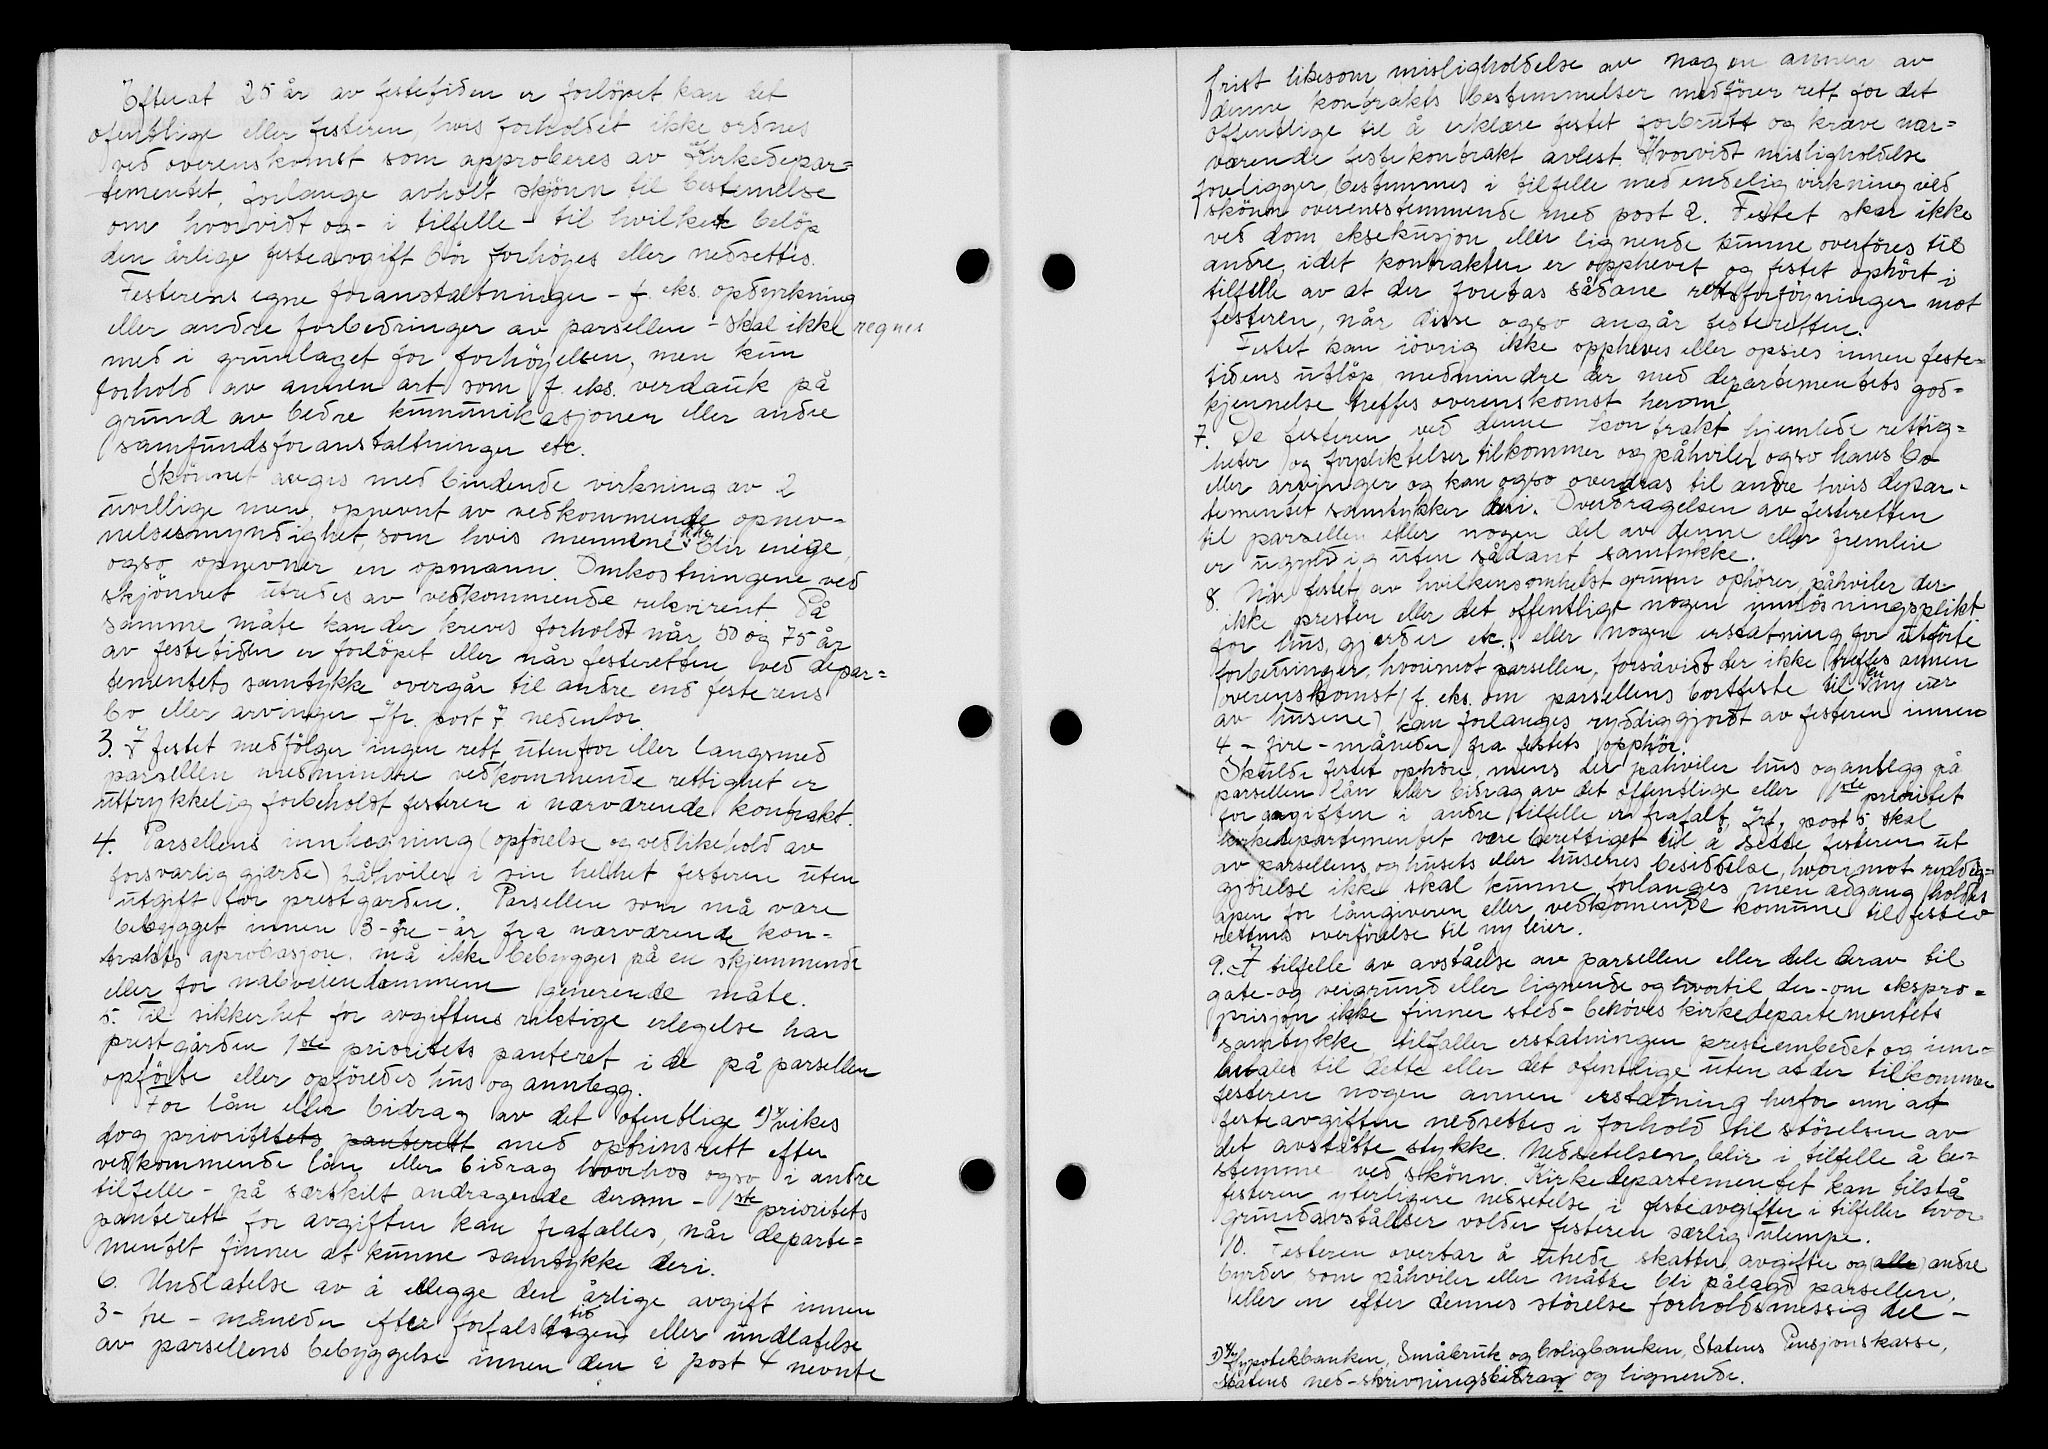 Efterat 25 år av festetiden er forløpet kan det
ofentlige eller festeren, hvis forholdet ikke ordnes
ved overenskomst som approberes av Kirkedepar=
tementet, forlange avholt skjønn til bestemelse
om hvorvidt og - i tilfelle - til hvilket beløp
den årlige festeavgift bør forhøyes eller nedsettes.
Festerens egne foranstaltninger - f. eks. opdyrkning
eller andre forbedringer av parsellen - skal ikke regnes
med i grunlaget for forhøyelsen, men kun
forhold av annen art som f. eks. verdauk på
grund av bedre kummunikasjoner eller andre
samfundsforanstaltninger etc.
Skønnet avgis med bindende virkning av 2
uvillige men, opnevnt av vedkommende opnev-
nelsesmyndighet, som hvis mennene ikke blir enige,
ogso opnevner en opmann. Omkostningene ved
skjønnet utredes av vedkommende rekvirent. På
samme måte kan der kreves forholdt når 50 og 75 år
av festetiden er forløpet eller når festeretten ved depar=
tementets samtykke overgår til andre end festerens
bo eller arvinger jfr. post 7 nedenfor.
3. I festet medfølger ingen rett utenfor eller langsmed
parsellen medmindre vedkommende rettighet er
uttrykkelig forbeholdt festeren i nærværende kontrakt.
4. Parsellens innhegning (opførelse og vedlikehold av
forsvarlig gjerde) påhviler i sin helhet festeren uten
utgift for prestgården. Parsellen som må være
bebygget innen 3-tre-år fra nærværende kon=
trakts aprobasjon, må ikke bebygges på en skjemmende
eller for naboeiendommene generende måte.
5. Til sikkerhet for avgiftens riktige erlegelse har
prestgården 1ste prioritets panteret i de på parsellen
opførte eller opføredes hus og annlegg.
For lån eller bidrag av det ofentlige x) vikes
dog prioritetets panterett med optrinsrett efter
vedkommende lån eller bidrag hvorhos ogso i andre
tilfelle - på særskilt andragende derom - 1ste prioritets
panterett for avgiften kan frafalles, når departe=
mentet finner at kunne samtykke deri.
6. Undlatelse av å erlegge den årlige avgift innen
3- tre - måneder efter forfalstid eller undlatelse
av parsellens bebyggelse innen den i post 4 nevnte
frist likesom misligholdelse av nogen annen av
denne kontrakts bestemmelser medfører rett for det
offentlige til å erklære festet forbrutt og kræve nær=
værende festekontrakt avlest. Hvorvidt misligholdelse
foreligger, bestemmes i tilfelle med endelig virkning ved
skønn overensstemmende med post 2. Festet skal ikke
ved dom, eksekusjon eller lignende kunne overføres til
andre, idet kontrakten er opphevet og festet ophørt i
tilfelle av at der foretas sådane rettsforføyninger mot
festeren, når disse ogso angår festeretten.
Festet kan iøvrig ikke oppheves eller opsies innen feste=
tidens utløp medmindre der med departementets god=
kjennelse treffes overenskomst herom.
7. De festeren ved denne kontrakt hjemlede rettig=
heter og forpliktelser tilkommer og påhviler ogso hans bo
eller arvinger og kan ogso overdras til andre hvis depar-
tementet samtykker deri. Overdragelsen av festeretten
til parsellen eller nogen del av denne eller fremleie
er ugyldig uten sådant samtykke.
8. Når festet av hvilkensomhelst grunn ophører, påhviler der
ikke presten eller det offentlige nogen innløsningsplikt
for hus, gjerder etc., eller nogen erstatning for utførte
forbetringer, hvorimot parsellen, forsåvidt der ikke treffes annen
overenskomst (f. eks. om parsellens bortfeste til en ny eier
av husene) kan forlanges ryddiggjordt av festeren innen
4 - fire - måneder fra festets opphør.
Skulde festet ophøre, mens der påhviler hus og anlegg på
parsellen lån eller bidrag av det offentlige eller 1ste prioritet
for avgiften i andre tilfelle er frafalt, Jrf. post 5 skal
kirkedepartementet være berettiget til å sette festeren ut
av parsellens og husets eller husenes besiddelse, hvorimot ryddig=
gjørelse ikke skal kunne forlanges men adgang holdes
åpen for långiveren eller vedkomende komune til feste
rettens overførelse til ny leier.
9. I tilfelle av avståelse av parsellen eller dele derav til
gate- og veigrund eller lignende og hvortil der - om ekspro=
prisjon ikke finner sted - behøves kirkedepartementets
samtykke, tilfaller erstatningen presteembedet og inn=
betales til dette eller det ofentlige uten at der tilkommer
festeren nogen annen erstatning herfor enn at
festeavgiften nedsettes i forhold til størelsen av
det avståtte stykke. Nedsetelsen blir i tilfelle å be=
stemme ved skønn. Kirkedepartementet kan tilstå
festeren yterligere nedsetelse i festeavgiften i tilfeller hvor
grundavståelser volder festeren særlig ulempe.
10. Festeren overtar å utrede skatter, avgifter og (alle) andre
byrder som påhviler eller måtte bli pålagd parsellen,
eller en efter dennes størelse forholdsmessig del -
x) Hypotekbanken, Småbruk og boligbanken, Statens Pensjonskasse,
Statens ned-skrivningsbidrag og lignende.